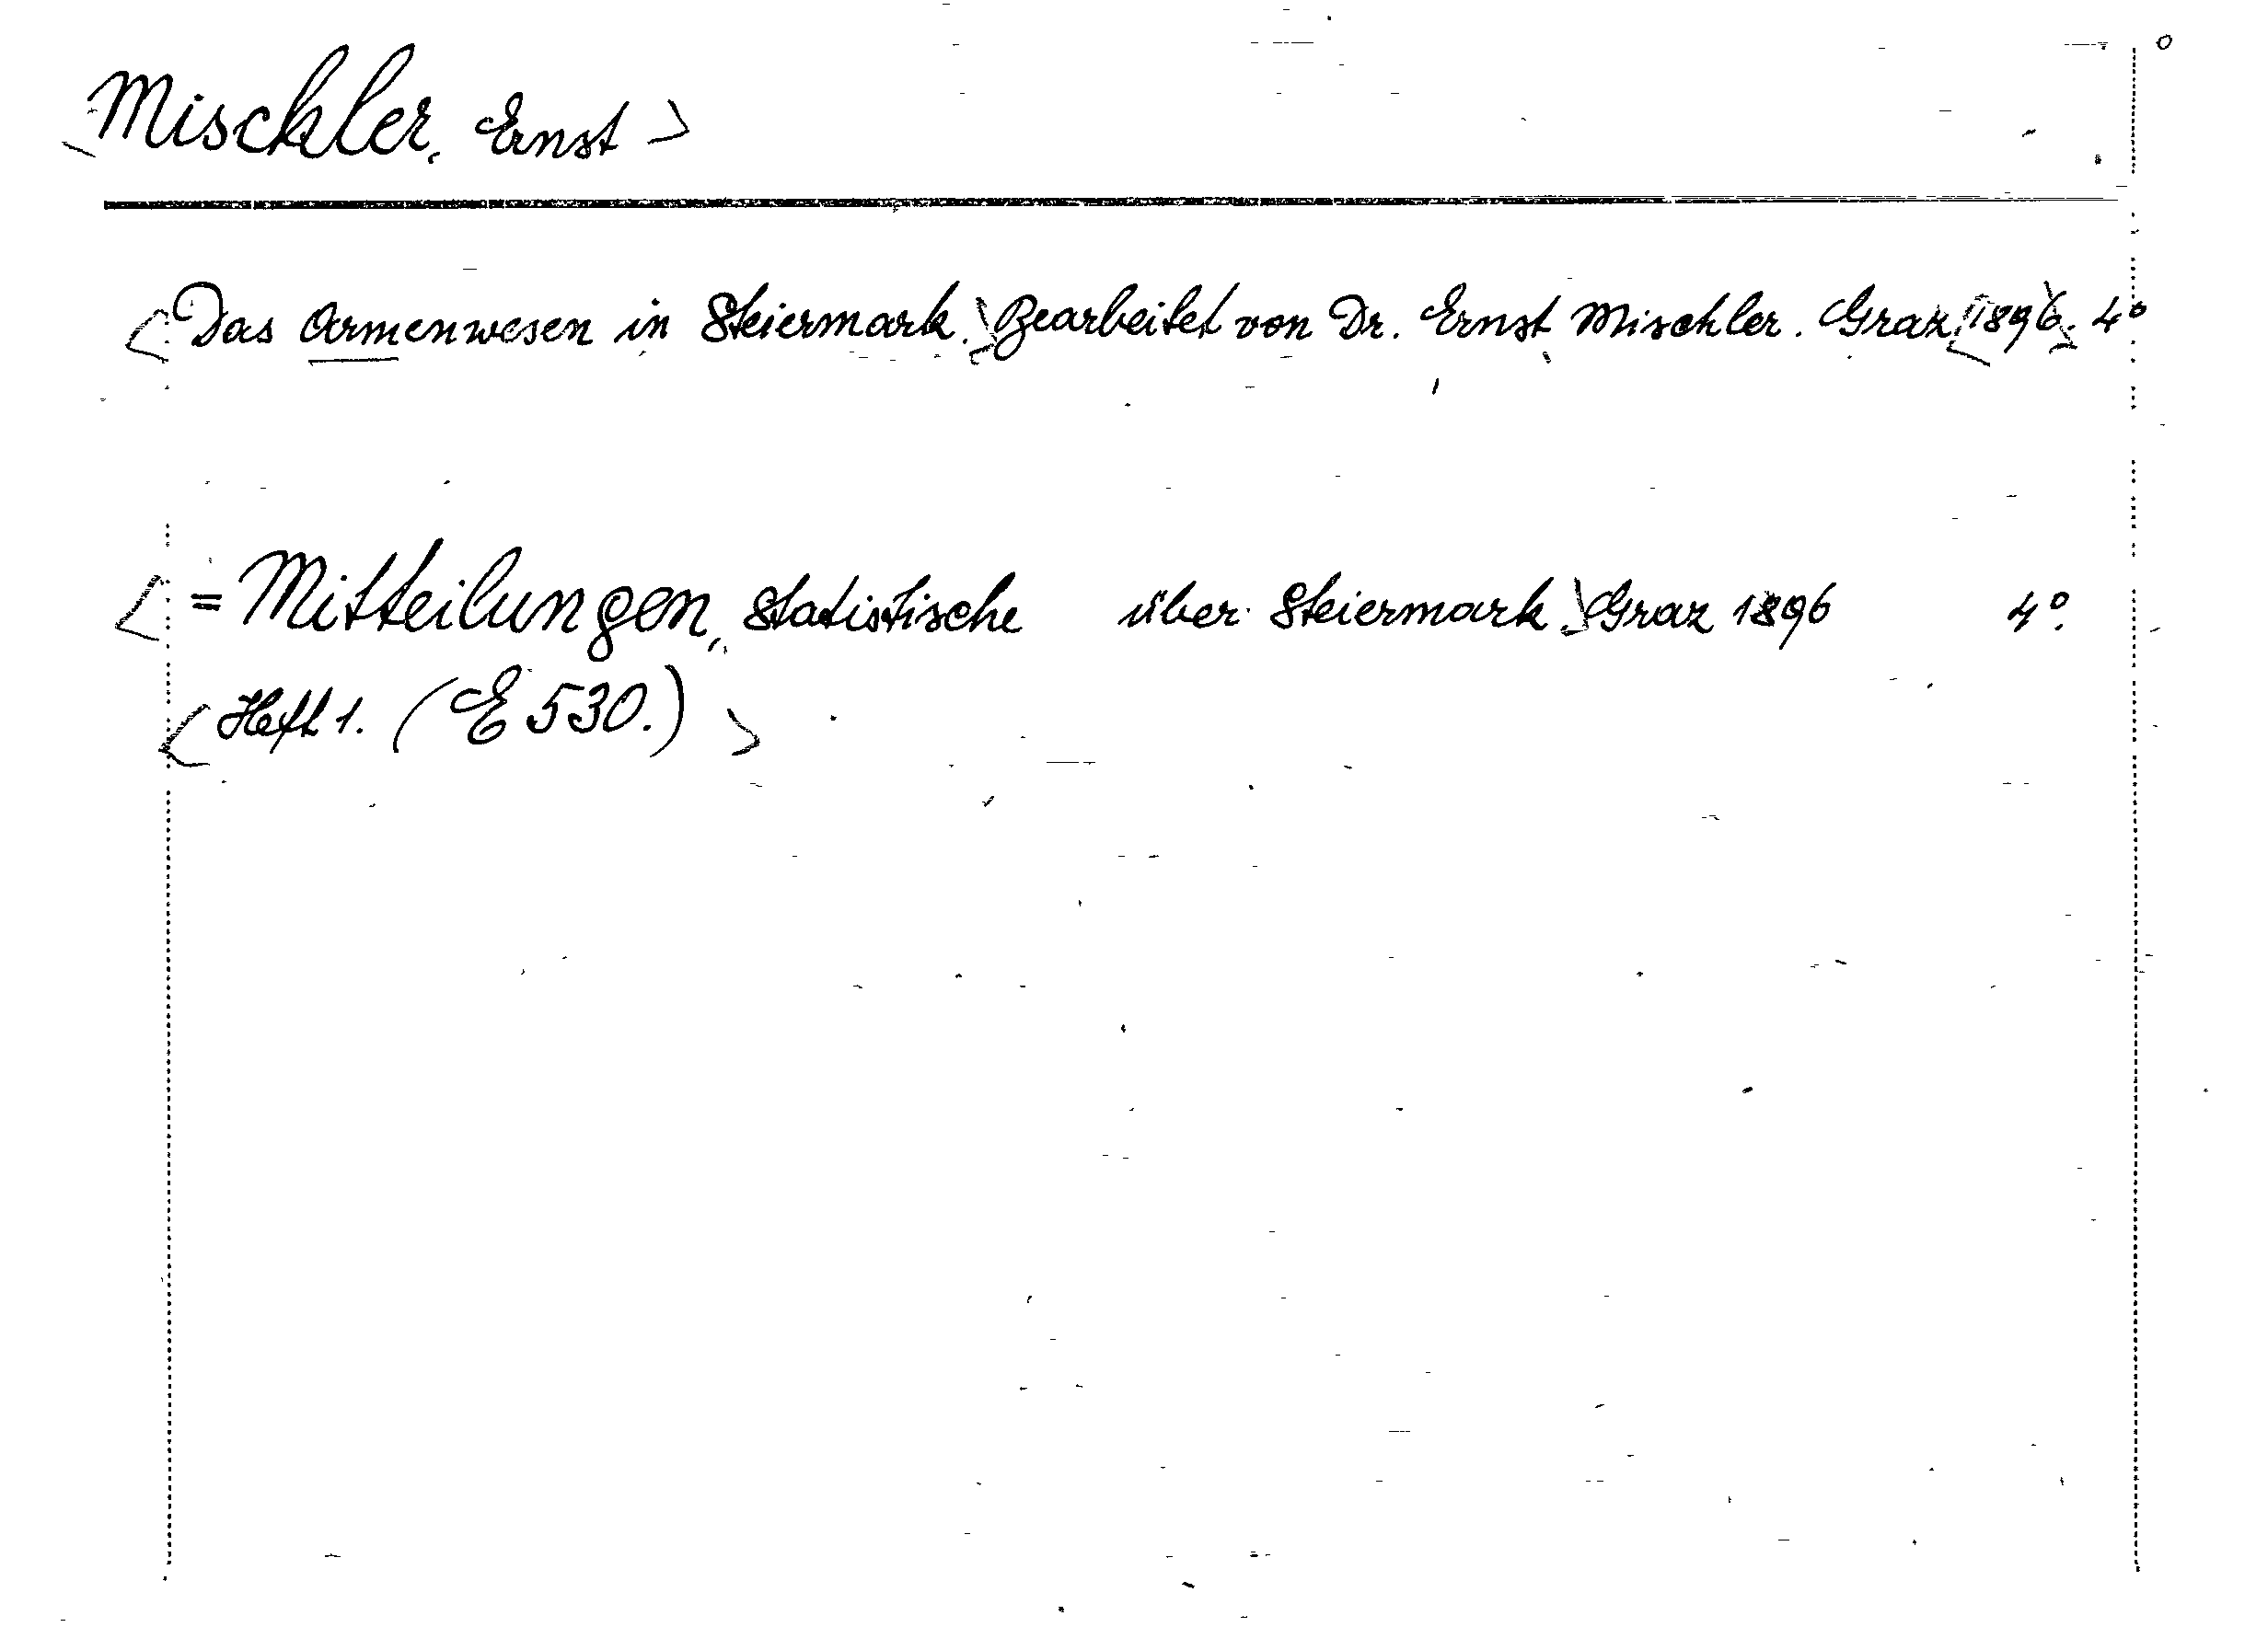 <Mischler, Ernst>
<Das Armenwesen in Steiermark.> Bearbeitet von Dr. Ernst Mischler. Graz, <1896>. 4°
<= Mitteilungen, statistische über Steiermark.> Graz 1896 4°.
<Heft 1. (E 530.)>